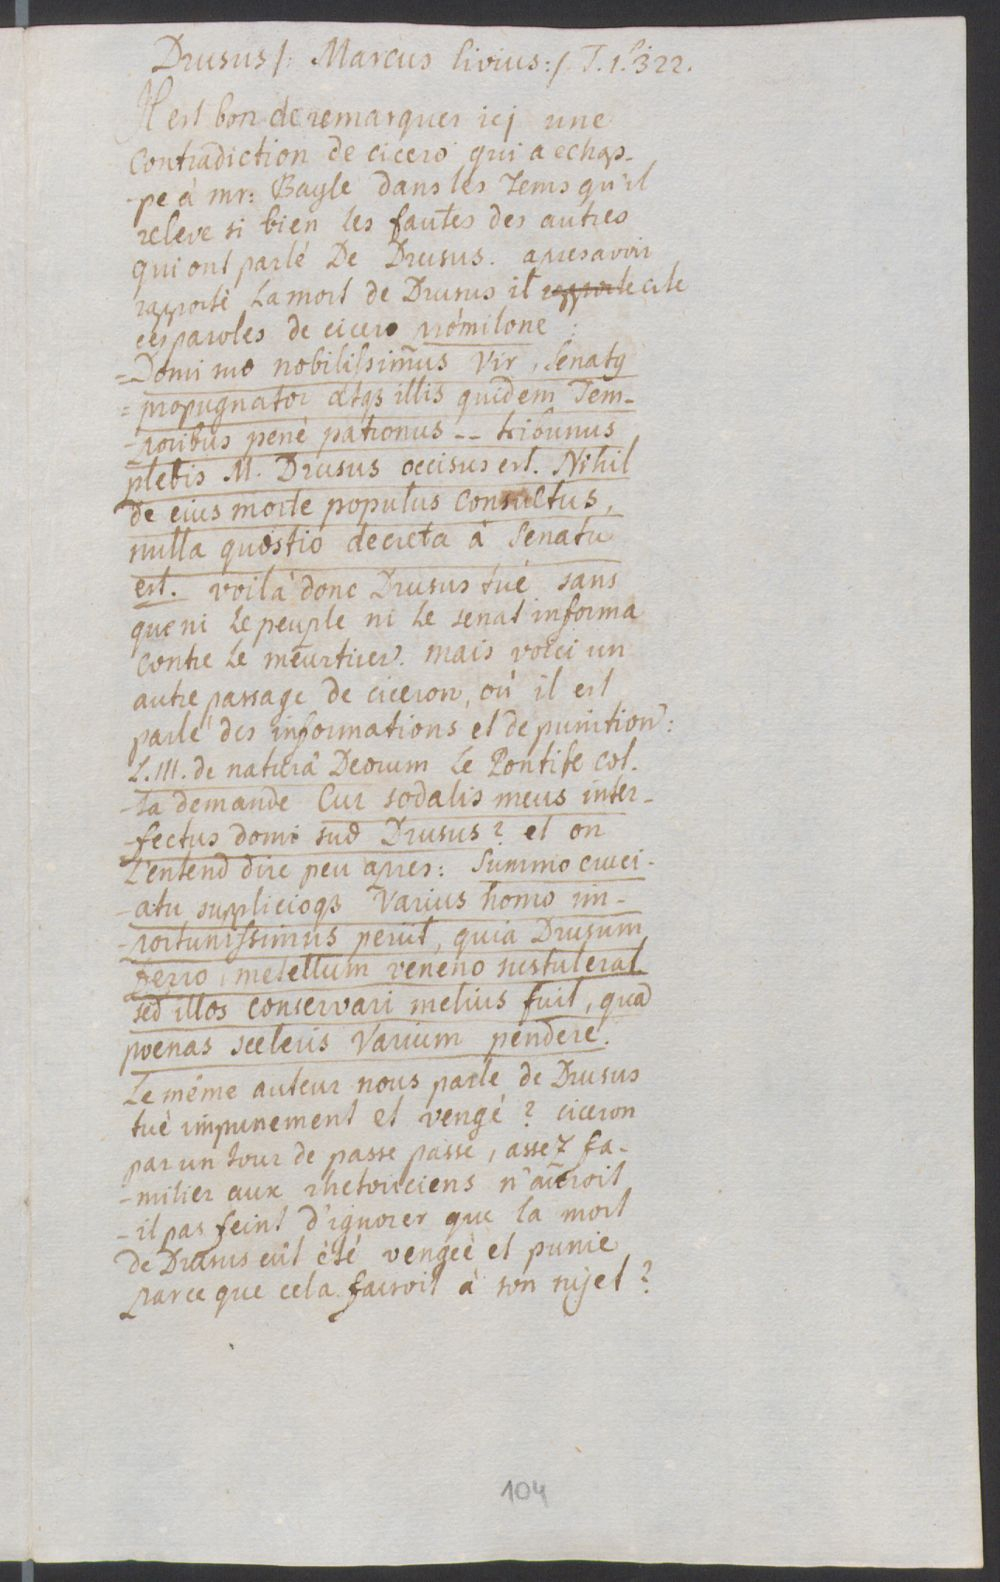 Drusus /: Marcus livius :/ T. 1. 322.
Il est bon de remarquer icj une
Contradiction de cicero qui a echap-
-pé à mr: Bayle dans les tems qu'il
releve si bien les fautes des autres
qui ont parlé De Drusus. apres avoir
rapporté La mort de Drusus il rapporte cite
ces paroles de cicero prómilone :
=Domi suæ nobilissimus Vir, Senatq
=propugnator atqs illis quidem Tem-
-poribus penè patronus -- tribunus
plebis M. Drusus occisus est. Nihil
de eius morte populus Consultus,
nulla quæstio decreta à Senatu
est. voilà donc Drusus tué sans
que ni Le peuple ni Le senat informa
Contre Le meurtrier. mais voici un
autre passage de ciceron, où il est
parlé des informations et de punition:
L. III. de naturâ Deorum Le Pontife Cot-
-ta demande Cur sodalis meus inter-
-fectus domi suæ Drusus? et on
L'entend dire peu apres: Summo cruci-
-atu supplicioqs Varius homo im-
-portunissimus periit, quia Drusum
ferro, metellum veneno sustulerat
sed illos conservari melius fuit, quâ
poenas sceleris Varium pendere.
Le même auteur nous parle de Drusus
tué impunement et vengé? ciceron
par un tour de passe passe, assez fa-
-milier aux rhetoriciens n'auroit
-il pas feint d'ignorer que la mort
de Drusus eût été vengée et punie
parce que cela fairoit à son sujet?
104